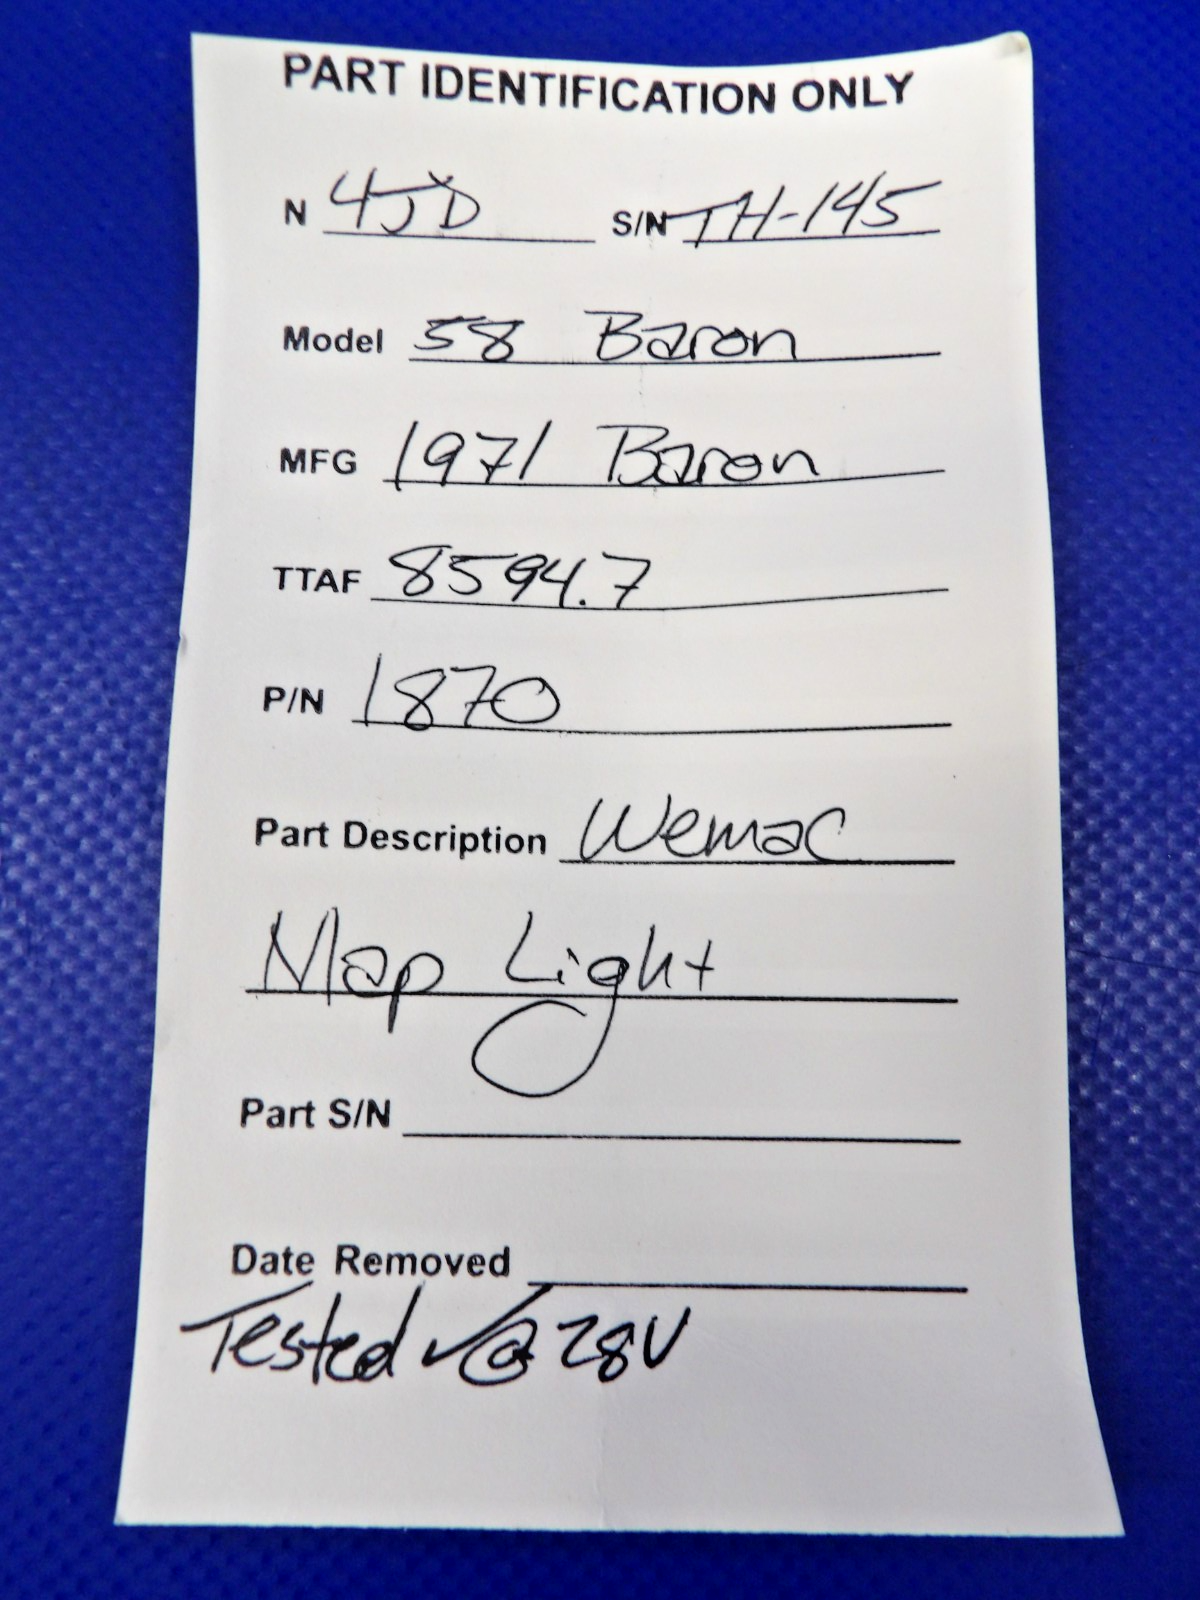 PART IDENTIFICATION ONLY
N 4JD S/N TH-145
Model 58 Baron
MFG 1971 Baron
TTAF 8594.7
P/N 1870
Part Description Wemac
Map Light
Part S/N
Date Removed
Tested ✓@ 28V